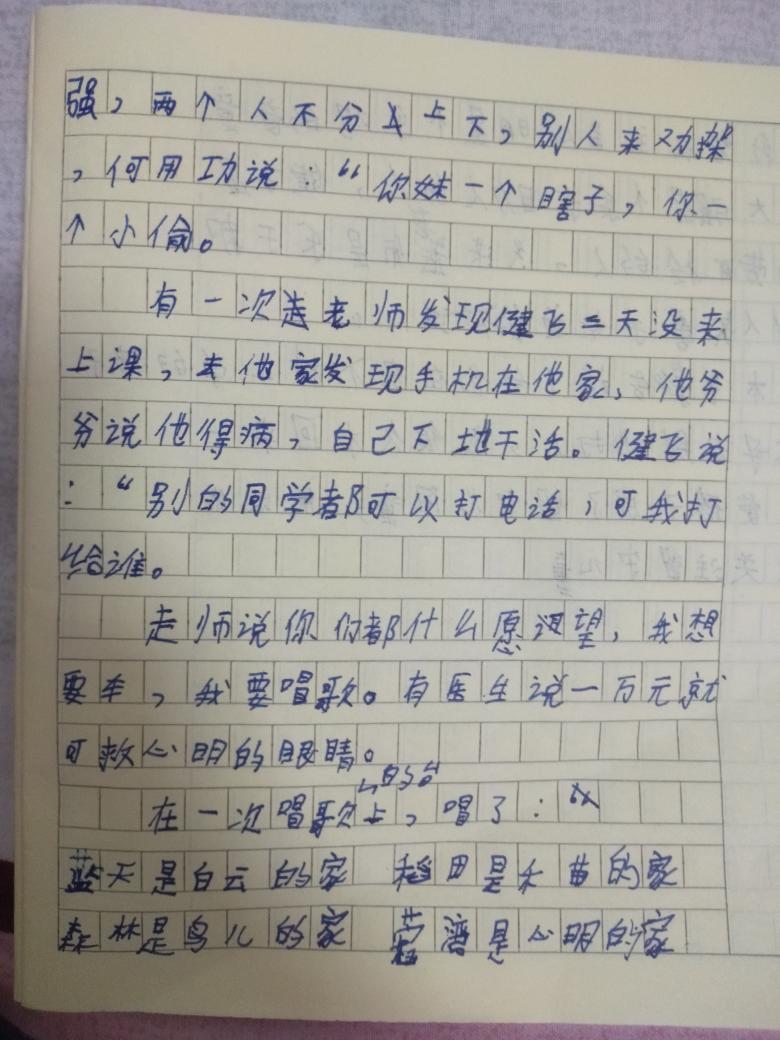 强，两个人不分上下，别人来劝操
，何用功说：“你妹一个瞎子，你一
个小偷。
有一次走老师发现健飞三天没来
上课，去他家发现手机在他家，他爷
爷说他得病，自己下地干活。健飞说
：“别的同学都可以打电话，可我打
给谁。
走师说你们都什么愿望，我想
要车，我要唱歌。有医生说一万元就
可救心明的眼睛。
在一次唱歌上，唱了：“
蓝天是白云的家 稻田是禾苗的家
森林是鸟儿的家 湾是心明的家